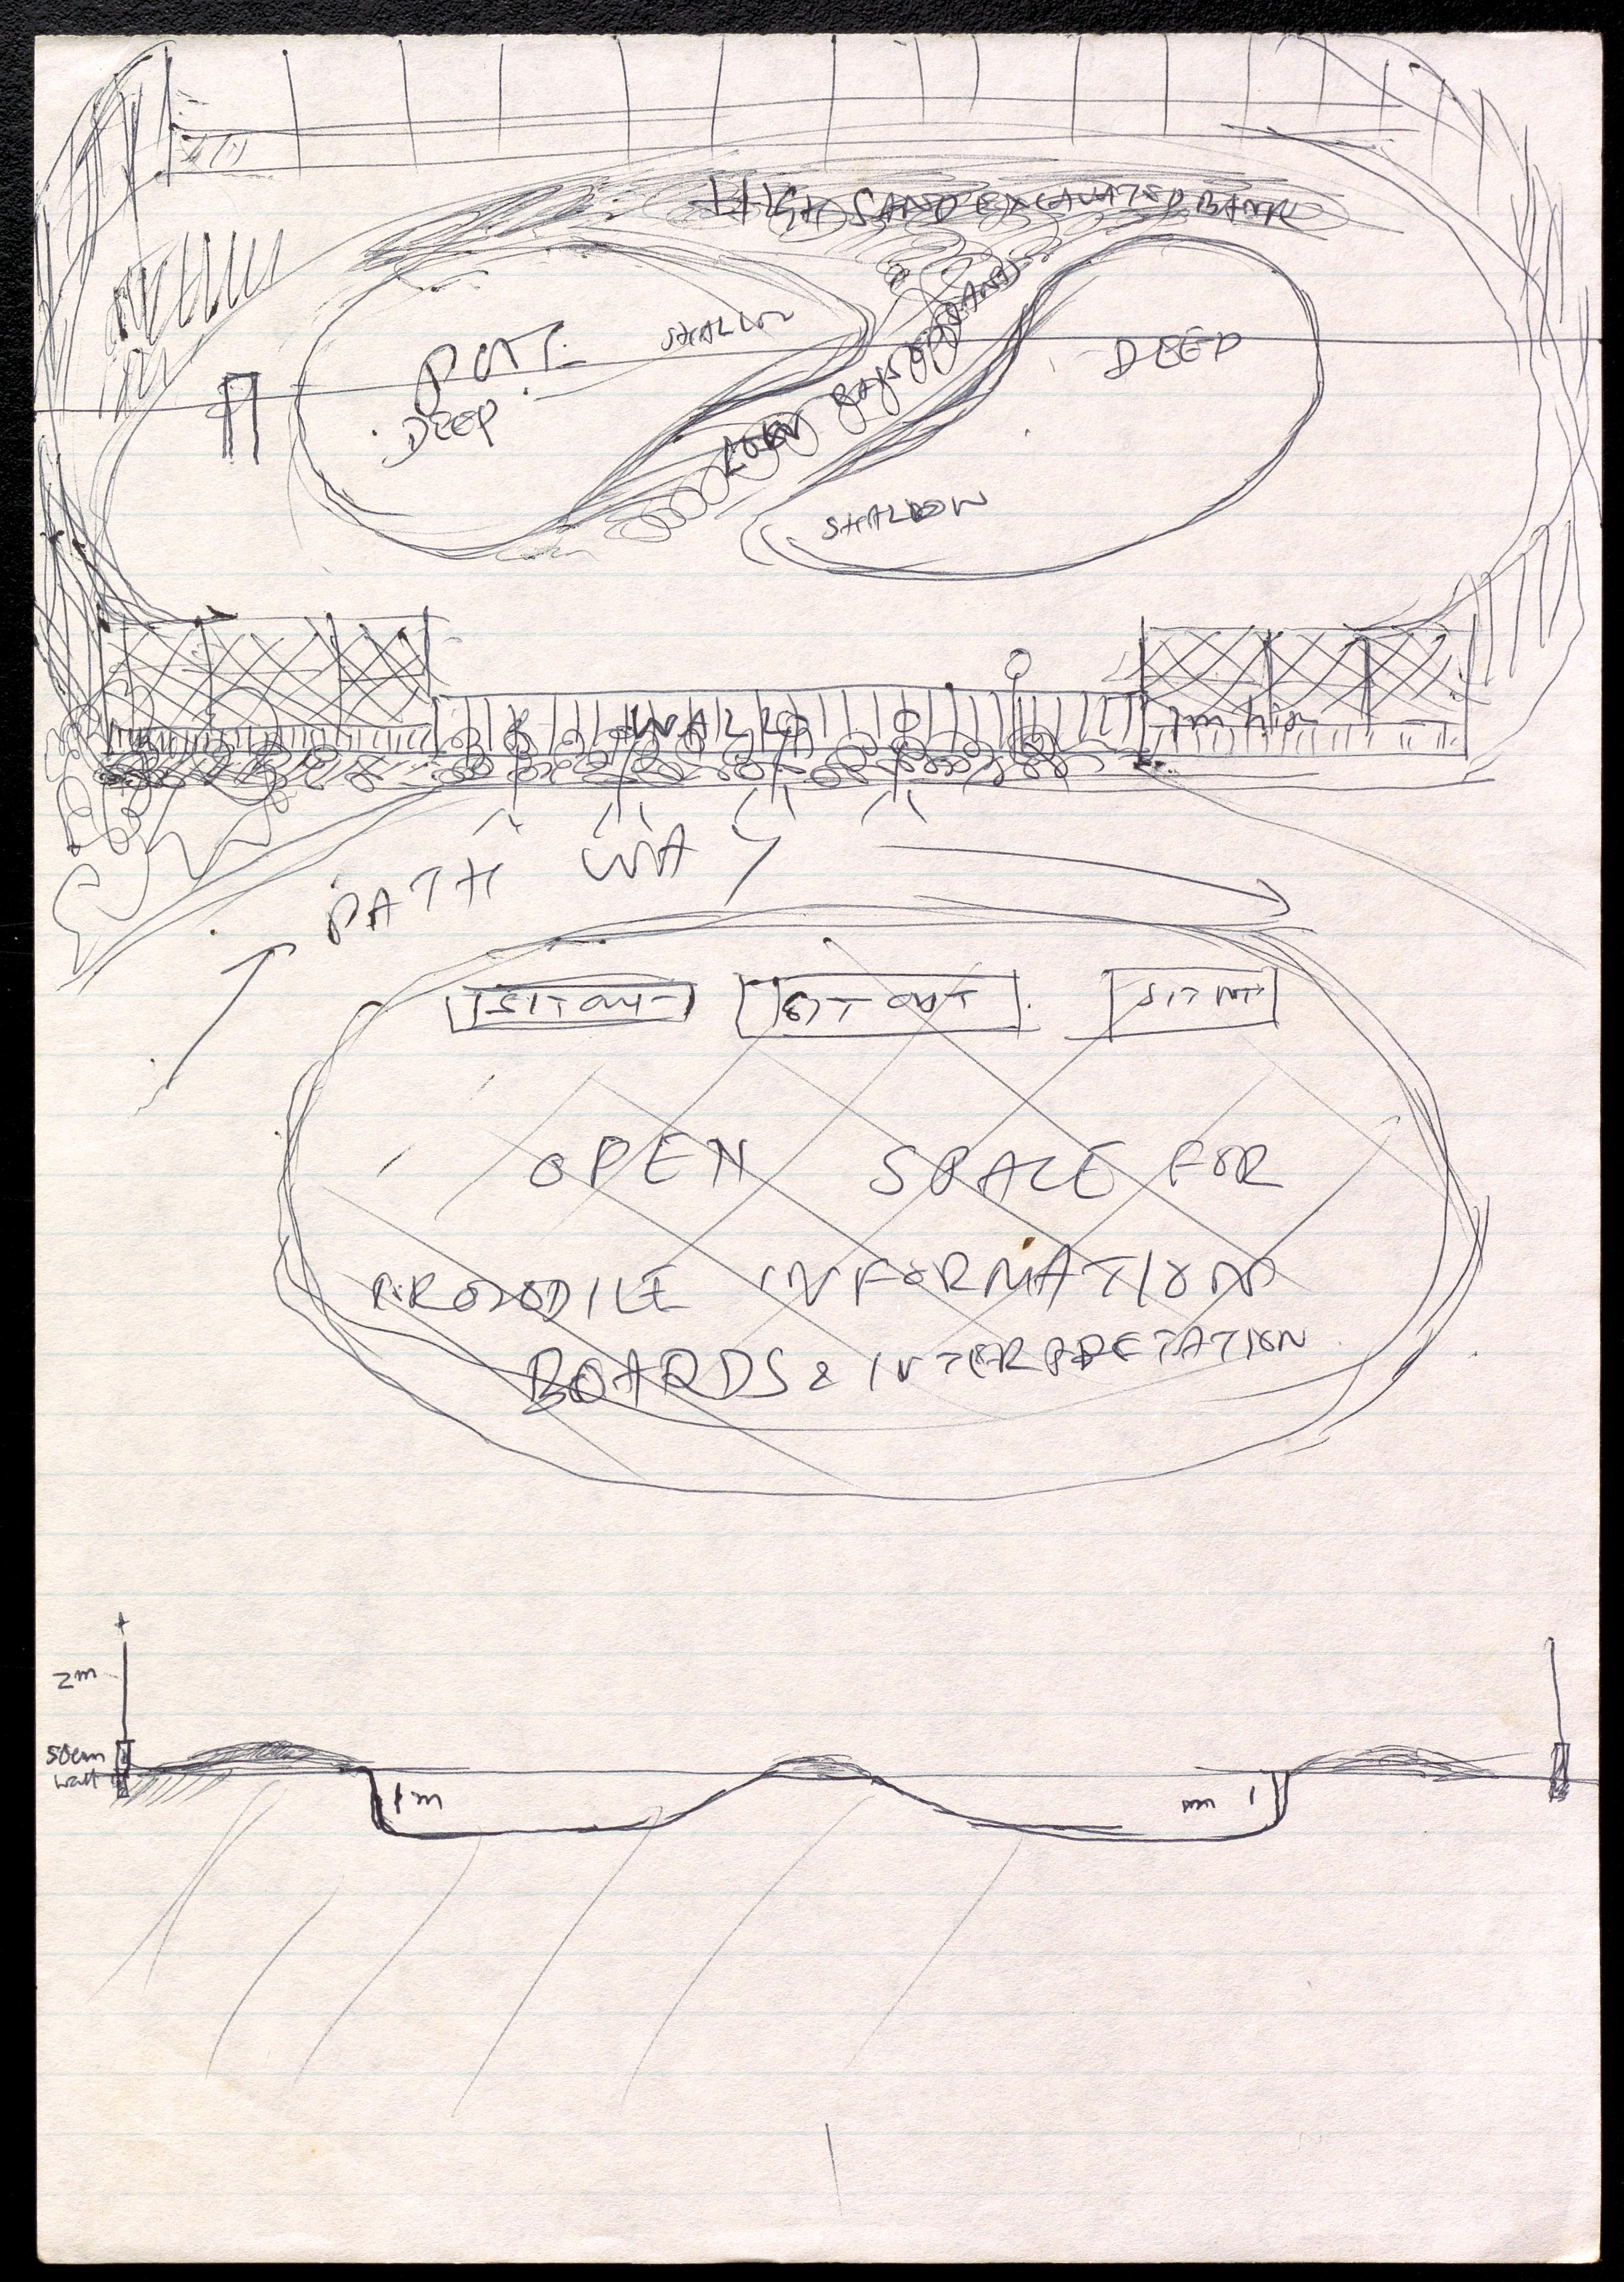 HIGH SAND EXCAVATED BANK
SHALLOW
DEEP
DEEP
SAND
SHALLOW
WALL
1m high
PATH WAY
SIT OUT
SIT OUT
SIT OUT
OPEN SPACE FOR
CROCODILE INFORMATION
BOARDS & INTERPRETATION
2m
50cm
wall
1m
m 1